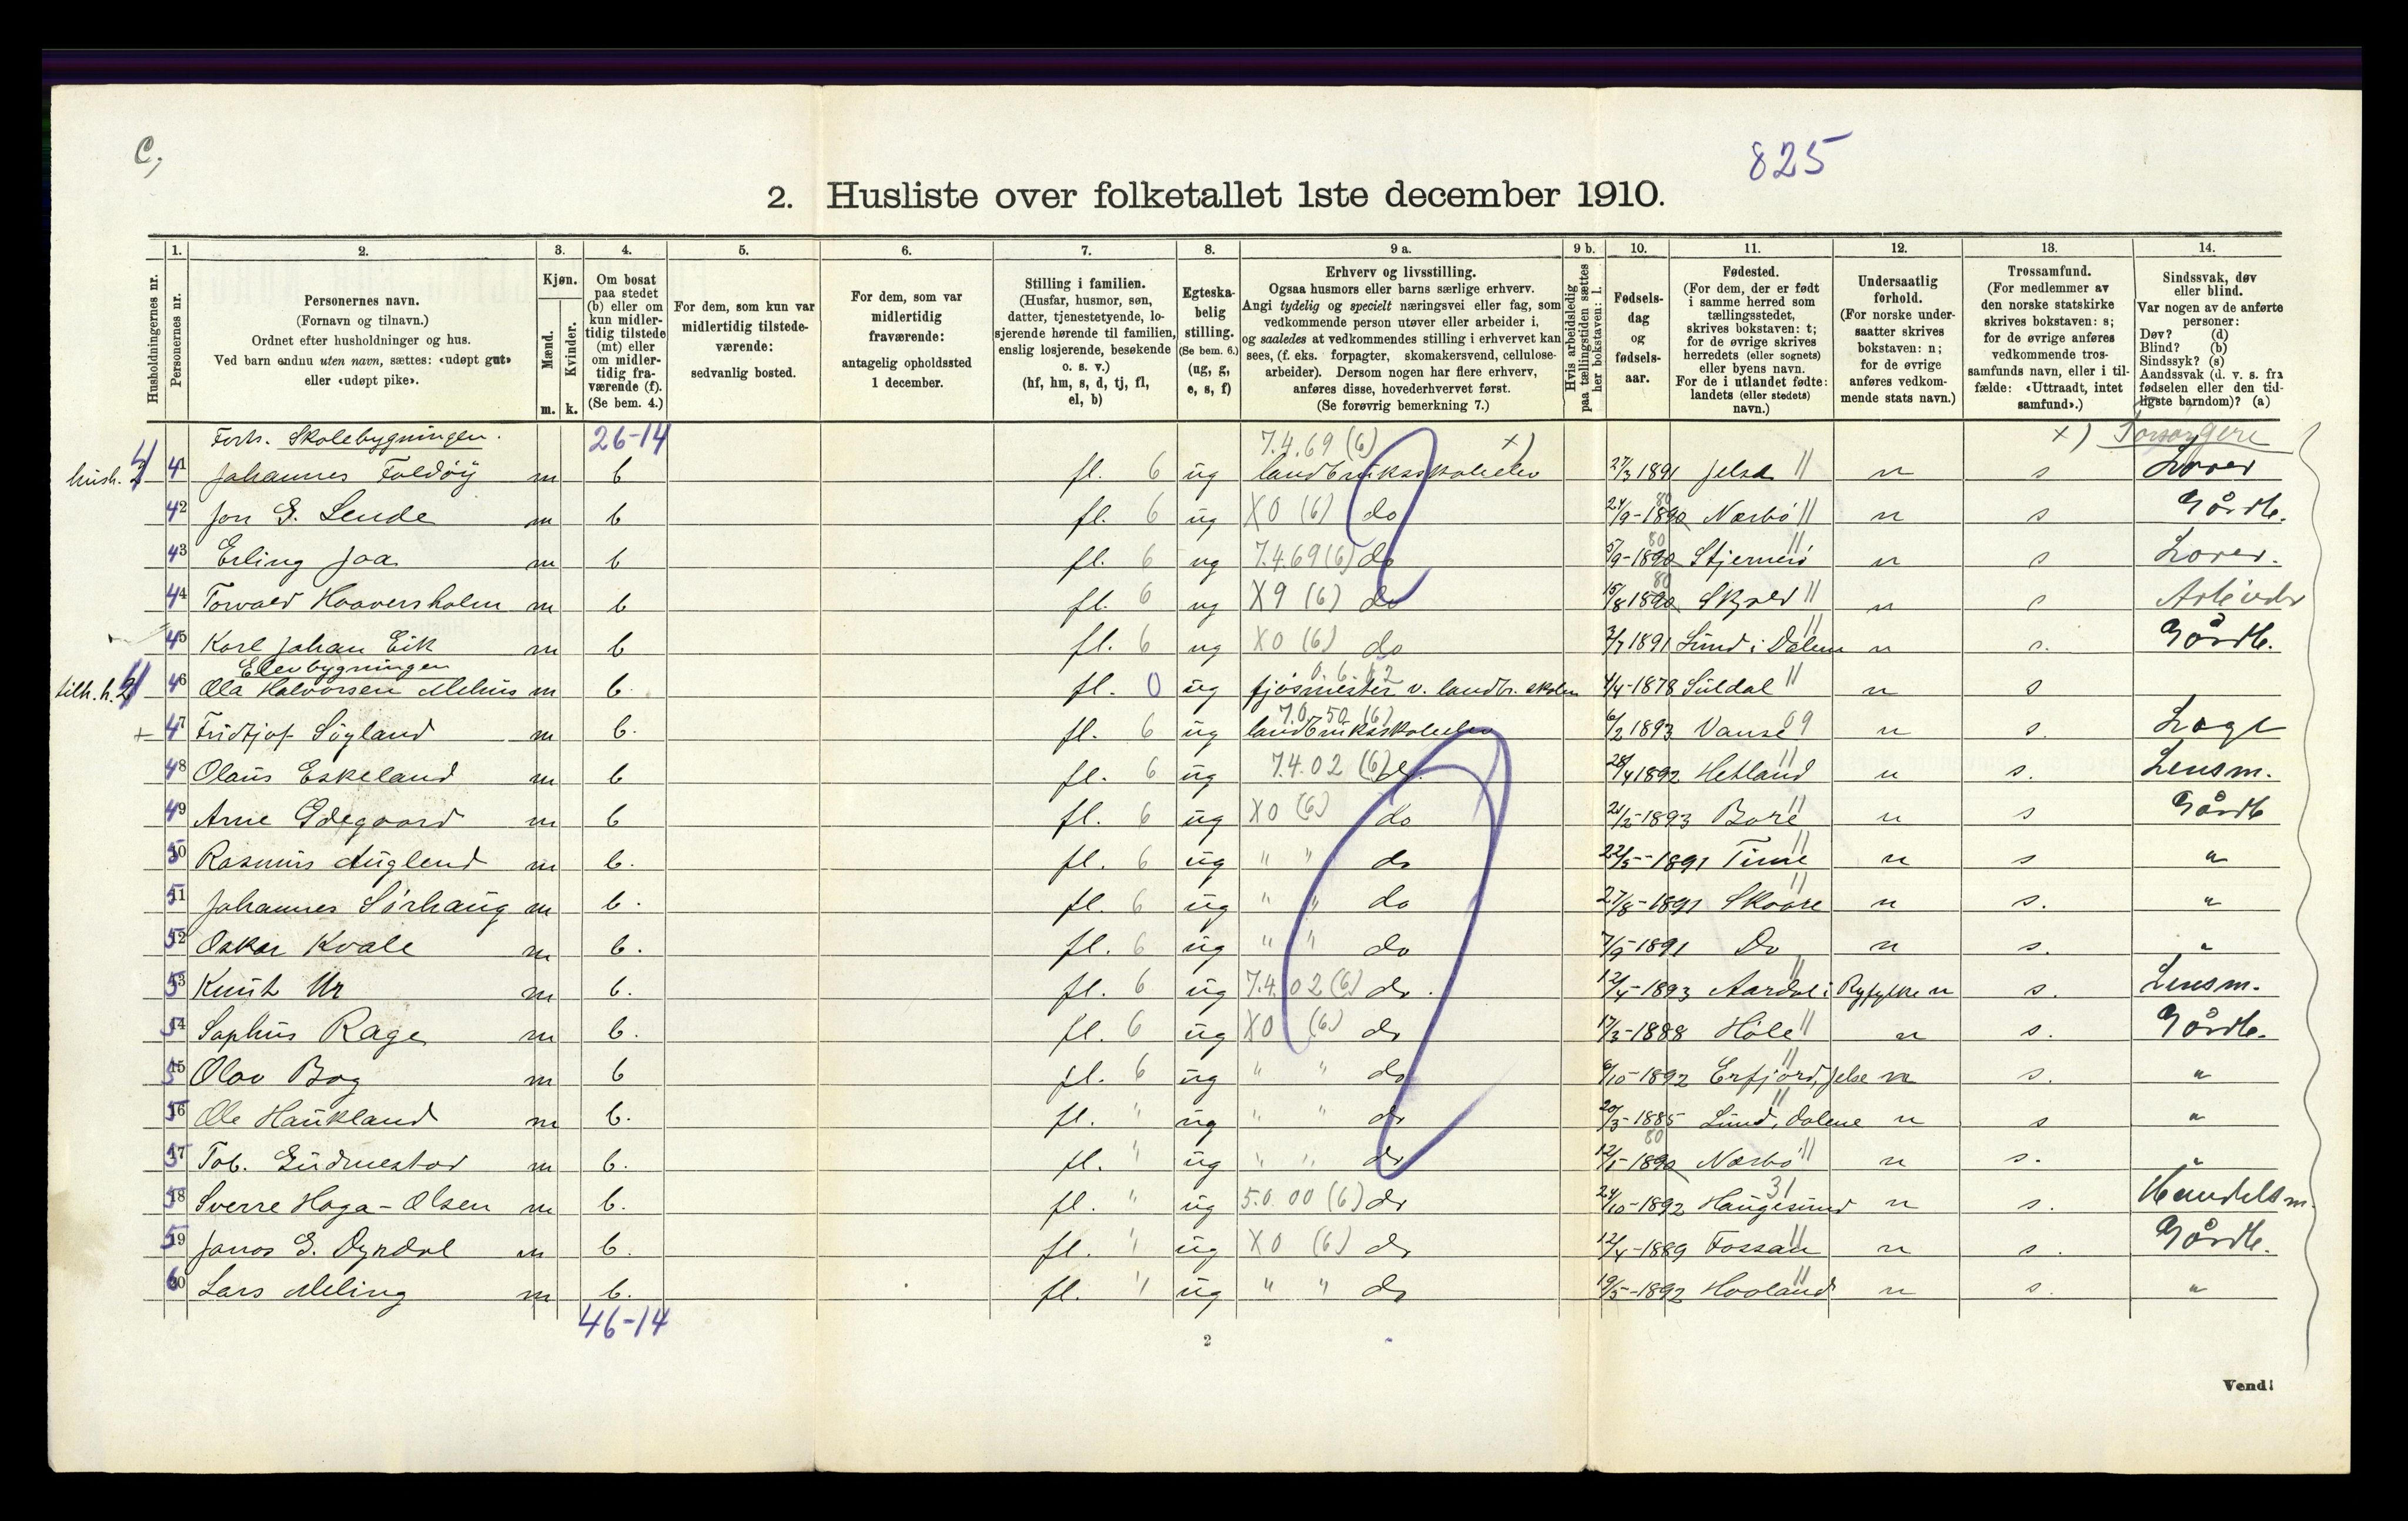 C,
825
2. Husliste over folketallet 1ste december 1910.
Husholdningernes nr.
1. Personernes nr.
2. Personernes navn. (Fornavn og tilnavn.) Ordnet efter husholdninger og hus. Ved barn endnu uten navn, sættes: «udøpt gut» eller «udøpt pike».
3. Kjøn. Mænd. m. Kvinder. k.
4. Om bosat paa stedet (b) eller om kun midlertidig tilstede (mt) eller om midlertidig fraværende (f). (Se bem. 4.)
5. For dem, som kun var midlertidig tilstedeværende: sedvanlig bosted.
6. For dem, som var midlertidig fraværende: antagelig opholdssted 1 december.
7. Stilling i familien. (Husfar, husmor, søn, datter, tjenestetyende, losjerende hørende til familien, enslig losjerende, besøkende o. s. v.) (hf, hm, s, d, tj, fl, el, b)
8. Egteskabelig stilling. (Se bem. 6.) (ug, g, e, s, f)
9 a. Erhverv og livsstilling. Ogsaa husmors eller barns særlige erhverv. Angi tydelig og specielt næringsvei eller fag, som vedkommende person utøver eller arbeider i, og saaledes at vedkommendes stilling i erhvervet kan sees, (f. eks. forpagter, skomakersvend, cellulosearbeider). Dersom nogen har flere erhverv, anføres disse, hovederhvervet først. (Se forøvrig bemerkning 7.)
9 b. Hvis arbeidsledig paa tællingstiden sættes her bokstaven: l.
10. Fødselsdag og fødselsaar.
11. Fødested. (For dem, der er født i samme herred som tællingsstedet, skrives bokstaven: t; for de øvrige skrives herredets (eller sognets) eller byens navn. For de i utlandet fødte: landets (eller stedets) navn.)
12. Undersaatlig forhold. (For norske undersaatter skrives bokstaven: n; for de øvrige anføres vedkommende stats navn.)
13. Trossamfund. (For medlemmer av den norske statskirke skrives bokstaven: s; for de øvrige anføres vedkommende trossamfunds navn, eller i tilfælde: «Uttraadt, intet samfund».)
14. Sindssvak, døv eller blind. Var nogen av de anførte personer: Døv? (d) Blind? (b) Sindssyk? (s) Aandssvak (d. v. s. fra fødselen eller den tidligste barndom)? (a)
Forts. Skolebygningen. 26-14 7.4.69 (6) x) x) Forsørgere
hush. 41 Johannes Foldöy m b fl. 6 ug landbruksskoleelev 27/3 1891 Jelsa 11 n s Lærer
42 Jon G. Lende m b fl. 6 ug X0 (6) do 24/9-1890 80 Nærbö 11 n s Gårdb.
43 Erling Jaa m b fl. 6 ug 7.4.69 (6) do 5/9-1890 80 Stjernerö 11 n s Lærer.
44 Torvald Haaversholm m b fl. 6 ug X9 (6) do 15/8 1890 80 Skjold 11 n s Arbeider
45 Karl Johan Eik m b fl. 6 ug X0 (6) do 3/7 1891 Lund i Dalene 11 n s. Gårdb.
Elevbygningen 0.6.62
tilh. h. 46 Ola Halvorsen Mehus m b. fl. 0 ug fjösmester v. landbr. skolen 4/4-1878 Suldal 11 n s
+ 47 Fridtjof Sögland m b. fl. 6 ug 7.0.50 (6) landbruksskoleelev 6/2 1893 Vanse 09 n s. Læge
48 Olaus Eskeland m b fl. 6 ug 7.4.02 (6) do 28/4 1892 Hetland 11 n s. Lensm.
49 Arne Ödegaard m b fl. 6 ug X0 (6) do 21/2-1893 Bore 11 n s Gårdb
50 Rasmus Auglend m b. fl. 6 ug " " do 22/5-1891 Time 11 n s "
51 Johannes Sörhaug m b. fl. 6 ug " " do 27/8-1891 Skaare 11 n s. "
52 Oskar Kvale m b. fl. 6 ug " " do 7/9-1891 Do n s. "
53 Knut Ur m b. fl. 6 ug 7.4.02 (6) do. 12/4-1893 Aardal i Ryfylke 11 n s. Lensm.
54 Saphus Rage m b. fl. 6 ug X0 (6) do 17/3-1888 Höle 11 n s. Gårdb.
55 Olav Bog m b fl. 6 ug " " do 6/10-1892 Erfjord, Jelse 11 n s. "
56 Ole Haukland m b. fl. " ug " " do 20/3-1885 Lund, Dalene 11 n s "
57 Tob. Gudmestad m b. fl. " ug " " do 12/5-1890 80 Nærbö 11 n s. "
58 Sverre Haga-Olsen m b. fl. " ug 5.0.00 (6) do 24/10-1892 Haugesund 31 n s. Handelsm.
59 Janos G. Dyrdal m b. fl. " ug X0 (6) do 12/4-1889 Fossan 11 n s. Gårdb.
60 Lars Meling m b. fl. " ug " " do 19/5-1892 Haaland 11 n s. "
46-14
2
Vend!